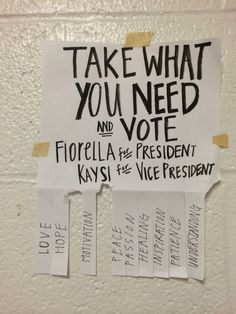 TAKE WHAT
YOU NEED
AND VOTE
FIORELLA for PRESIDENT
KAYSI for VICE PRESIDENT
LOVE
HOPE
MOTIVATION
PEACE
PASSION
HEALING
INSPIRATION
PATIENCE
UNDERSTANDING